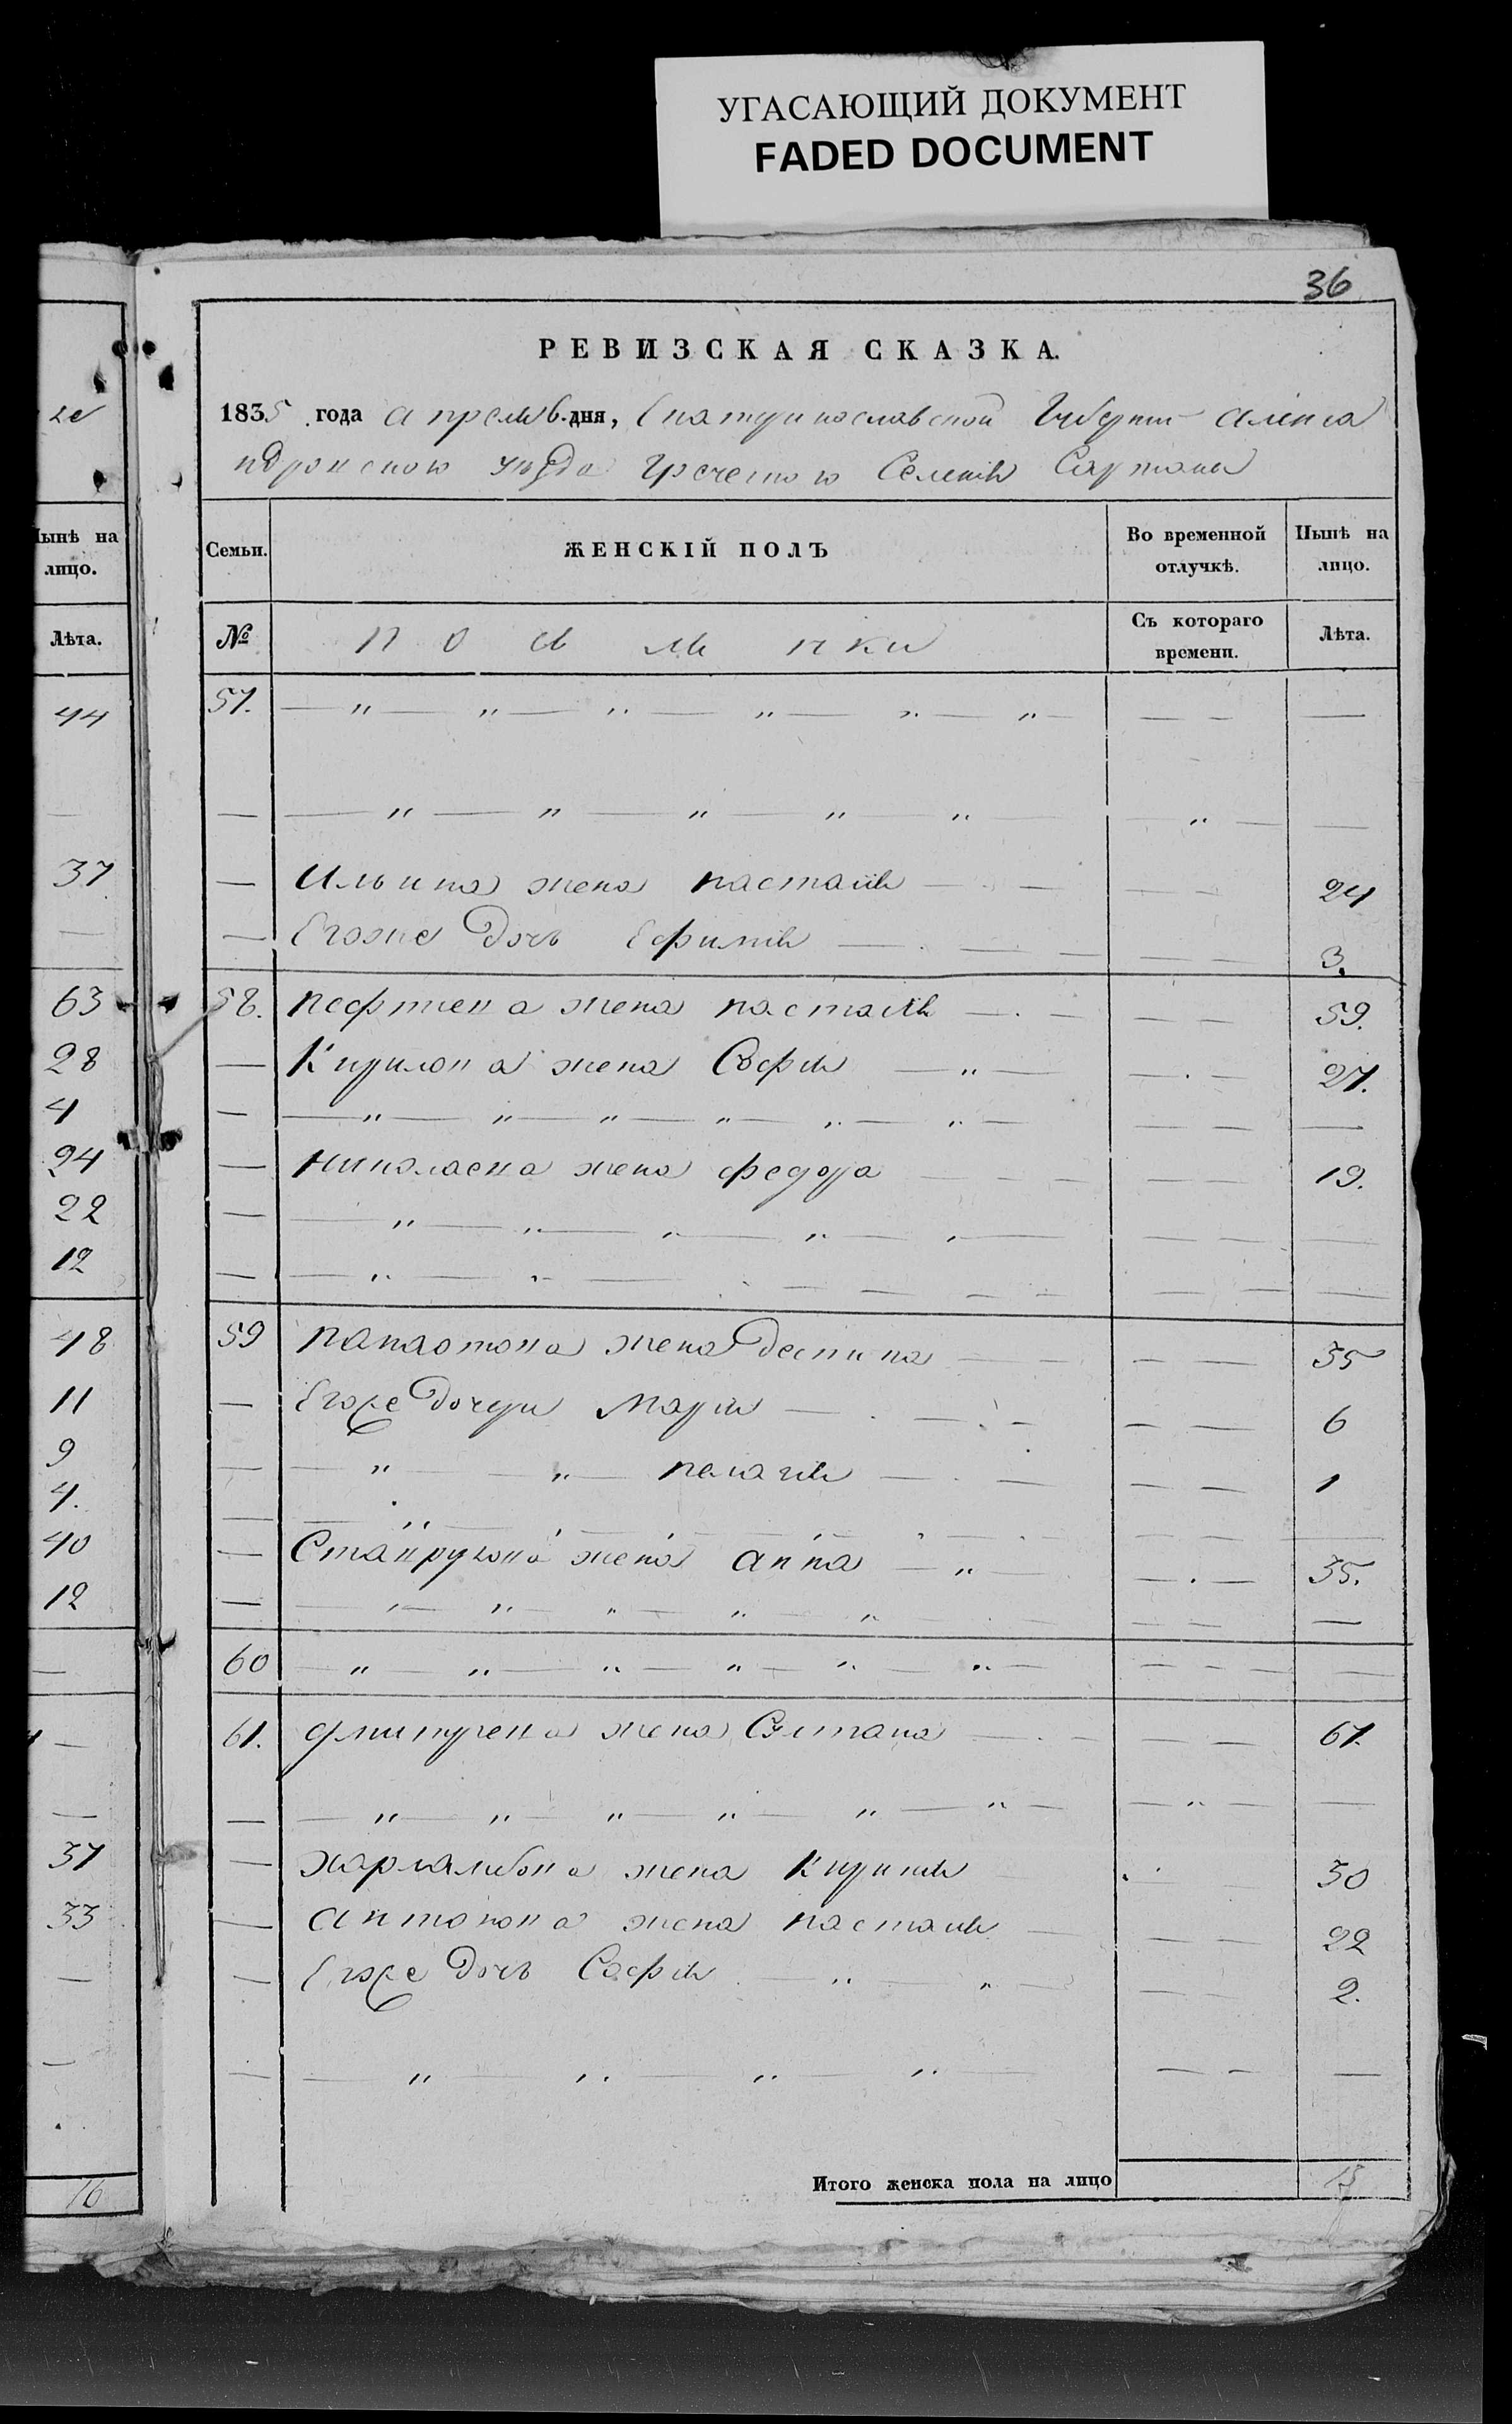 УГАСАЮЩИЙ ДОКУМЕНТ
FADED DOCUMENT
36
РЕВИЗСКАЯ СКАЗКА.
1835 года апреля 6 дня, Екатеринославской Губернии Алекса
ндровского уезда Греческого Селения Сартаны
Нынѣ на лицо.
Лѣта.
44
37
63
28
4
24
22
12
48
11
9
4.
40
12
37
33
16
Семьи. ЖЕНСКІЙ ПОЛЪ Во временной отлучкѣ. Нынѣ на лицо.
№ Съ котораго времени. Лѣта.
57.
— Ильина жена настасия — 24
— Егоже дочь Ефимия — 3.
58. жена настасия — 59.
— Кирилова жена София — 27.
— Николаева жена федора — 19.
59 жена деспина — 35
— Егоже дочери Мария — 6
— " — " — пелагия — 1
— жена анна — 35.
60
61. жена Султана — 67.
— Харлампова жена Кирикия 30
— Антонова жена настасия — 22
— Егоже дочь София — 2.
Итого женска пола на лицо 13